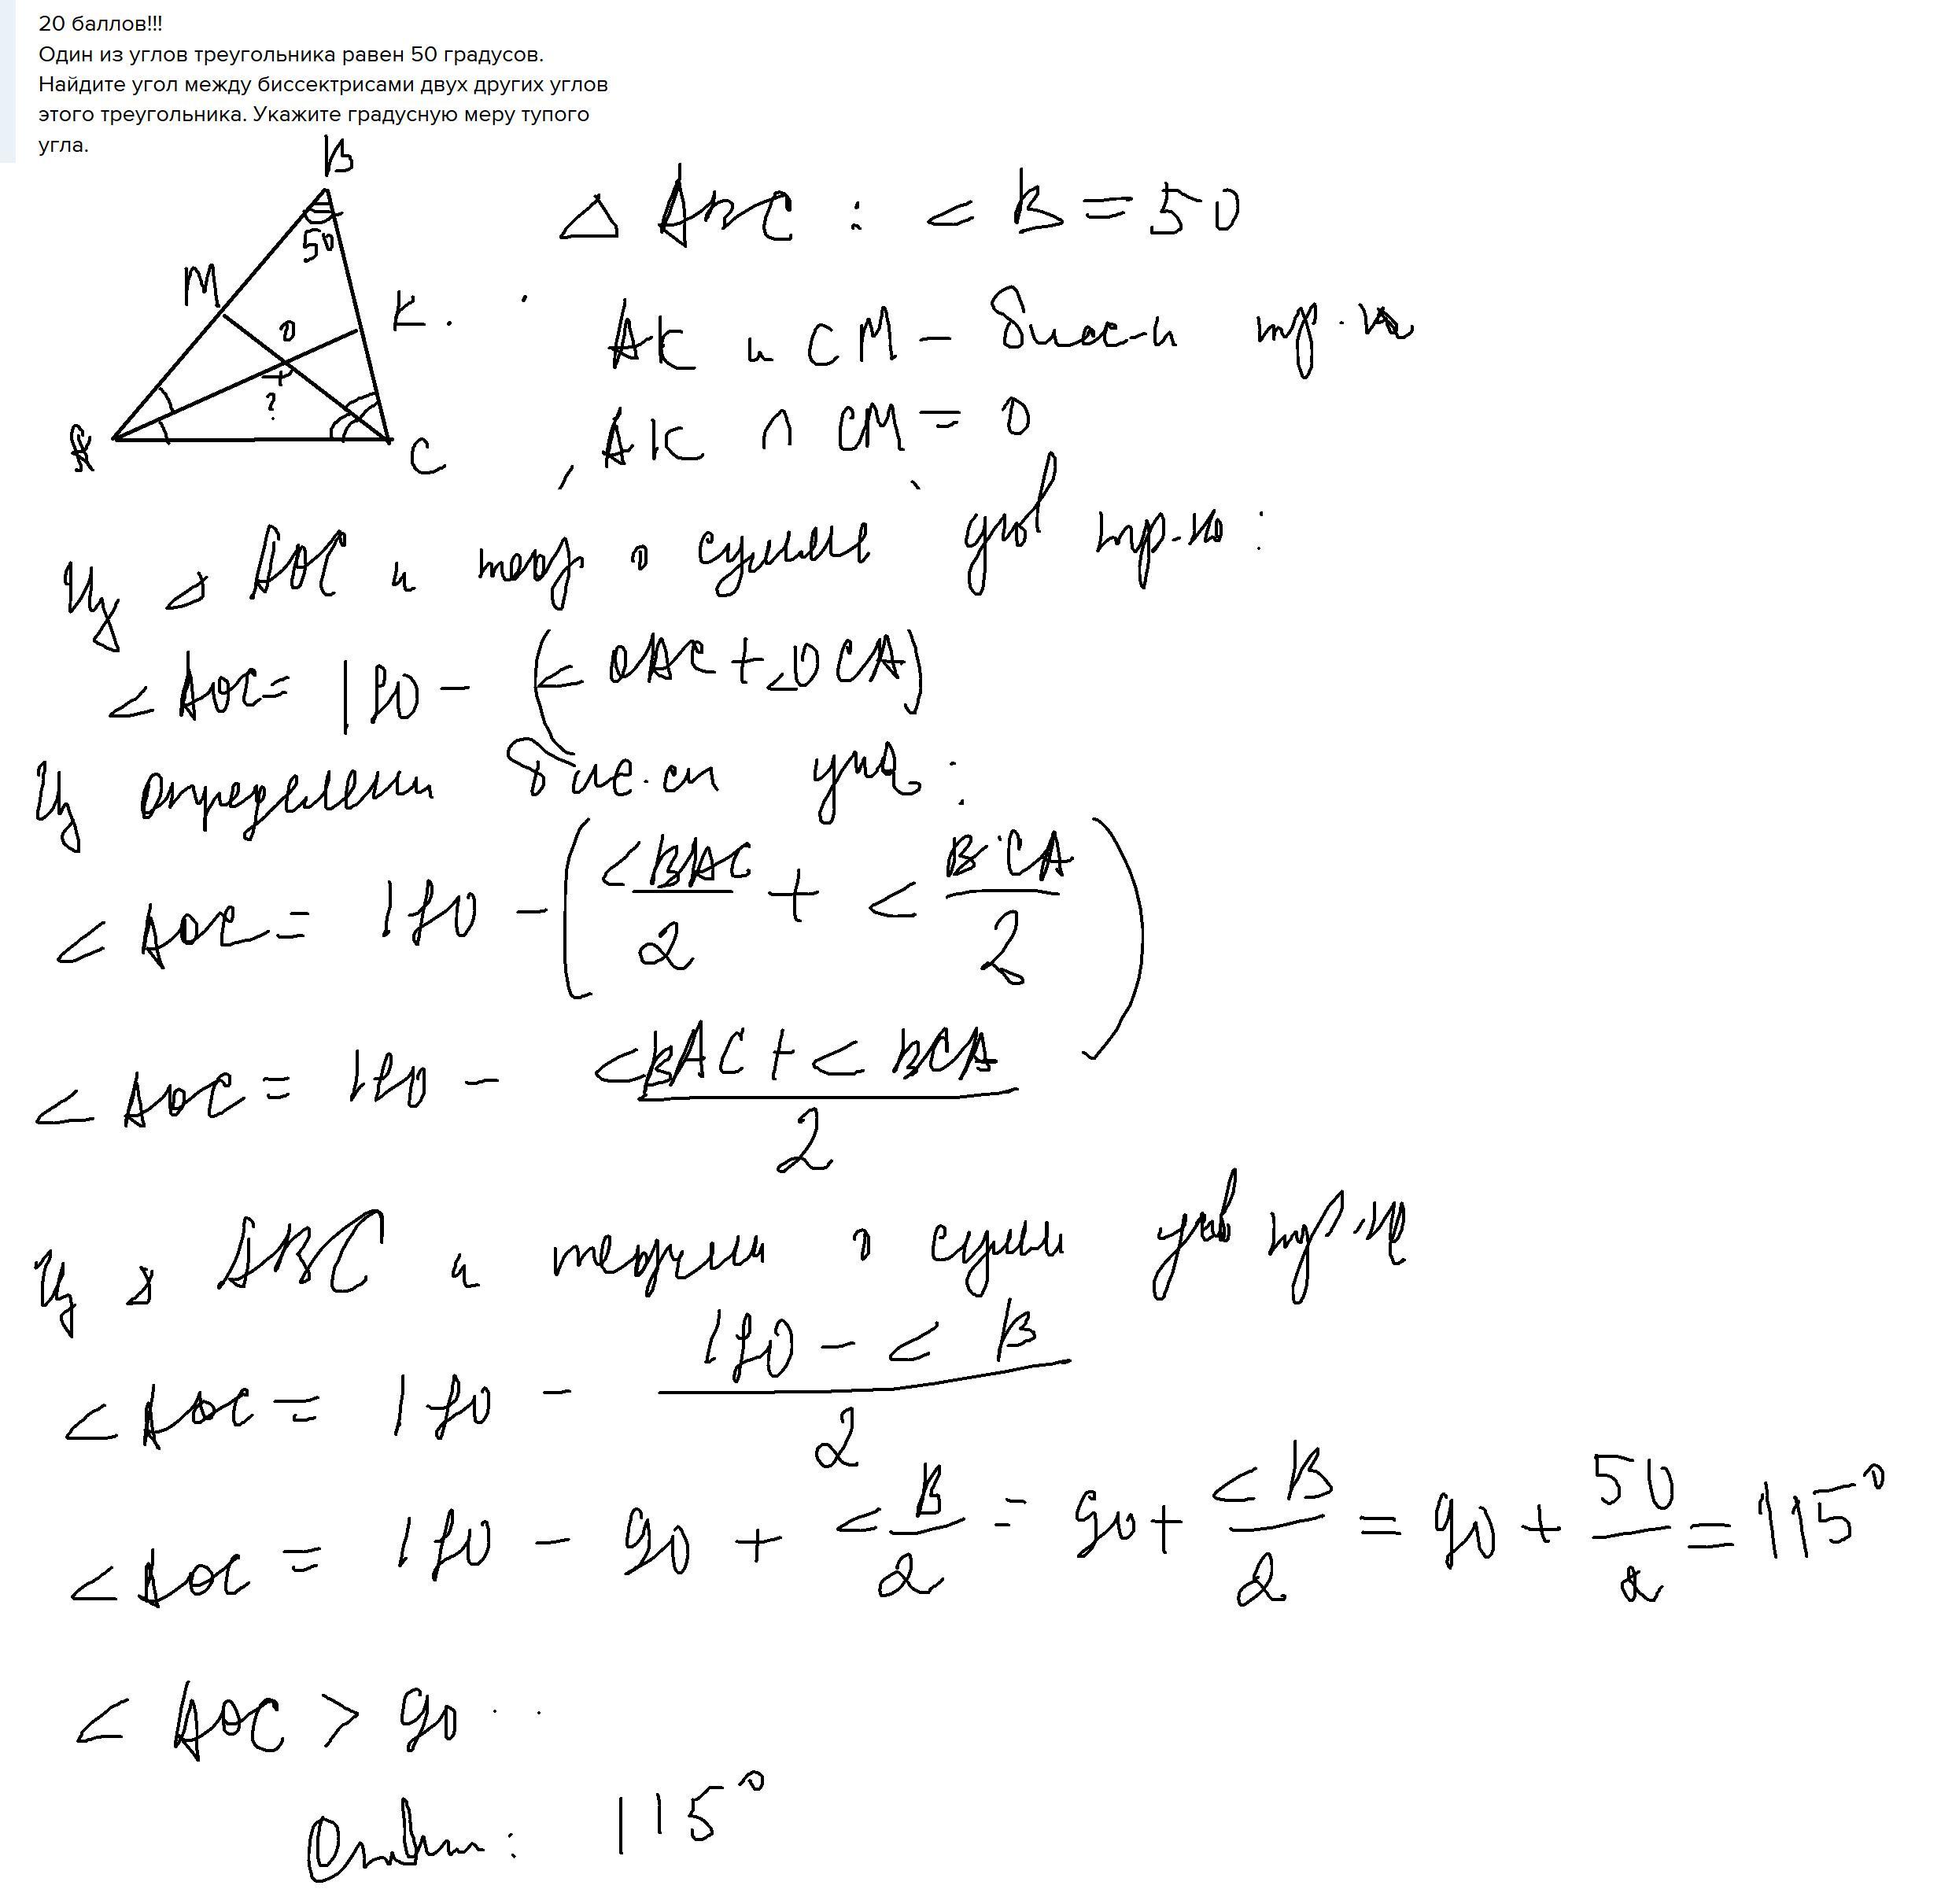 20 баллов!!!
Один из углов треугольника равен 50 градусов.
Найдите угол между биссектрисами двух других углов
этого треугольника. Укажите градусную меру тупого
угла.
B
50
M
K.
O
?
A
C
△ ABC : < B = 50
AK и CM - бисс-и тр-ка
AK ∩ CM = O
Из △ AOC и теор о сумме углов тр-ка:
< AOC = 180 - (< OAC + <OCA)
Из определени бис-си угла:
< AOC = 180 - (<BAC/2 + < BCA/2)
< AOC = 180 - (<BAC + < BCA)/2
Из △ ABC и теоремы о сумм углов тр-ка
< AOC = 180 - (180 - < B)/2
< AOC = 180 - 90 + < B/2 = 90 + < B/2 = 90 + 50/2 = 115°
< AOC > 90
Ответ: 115°